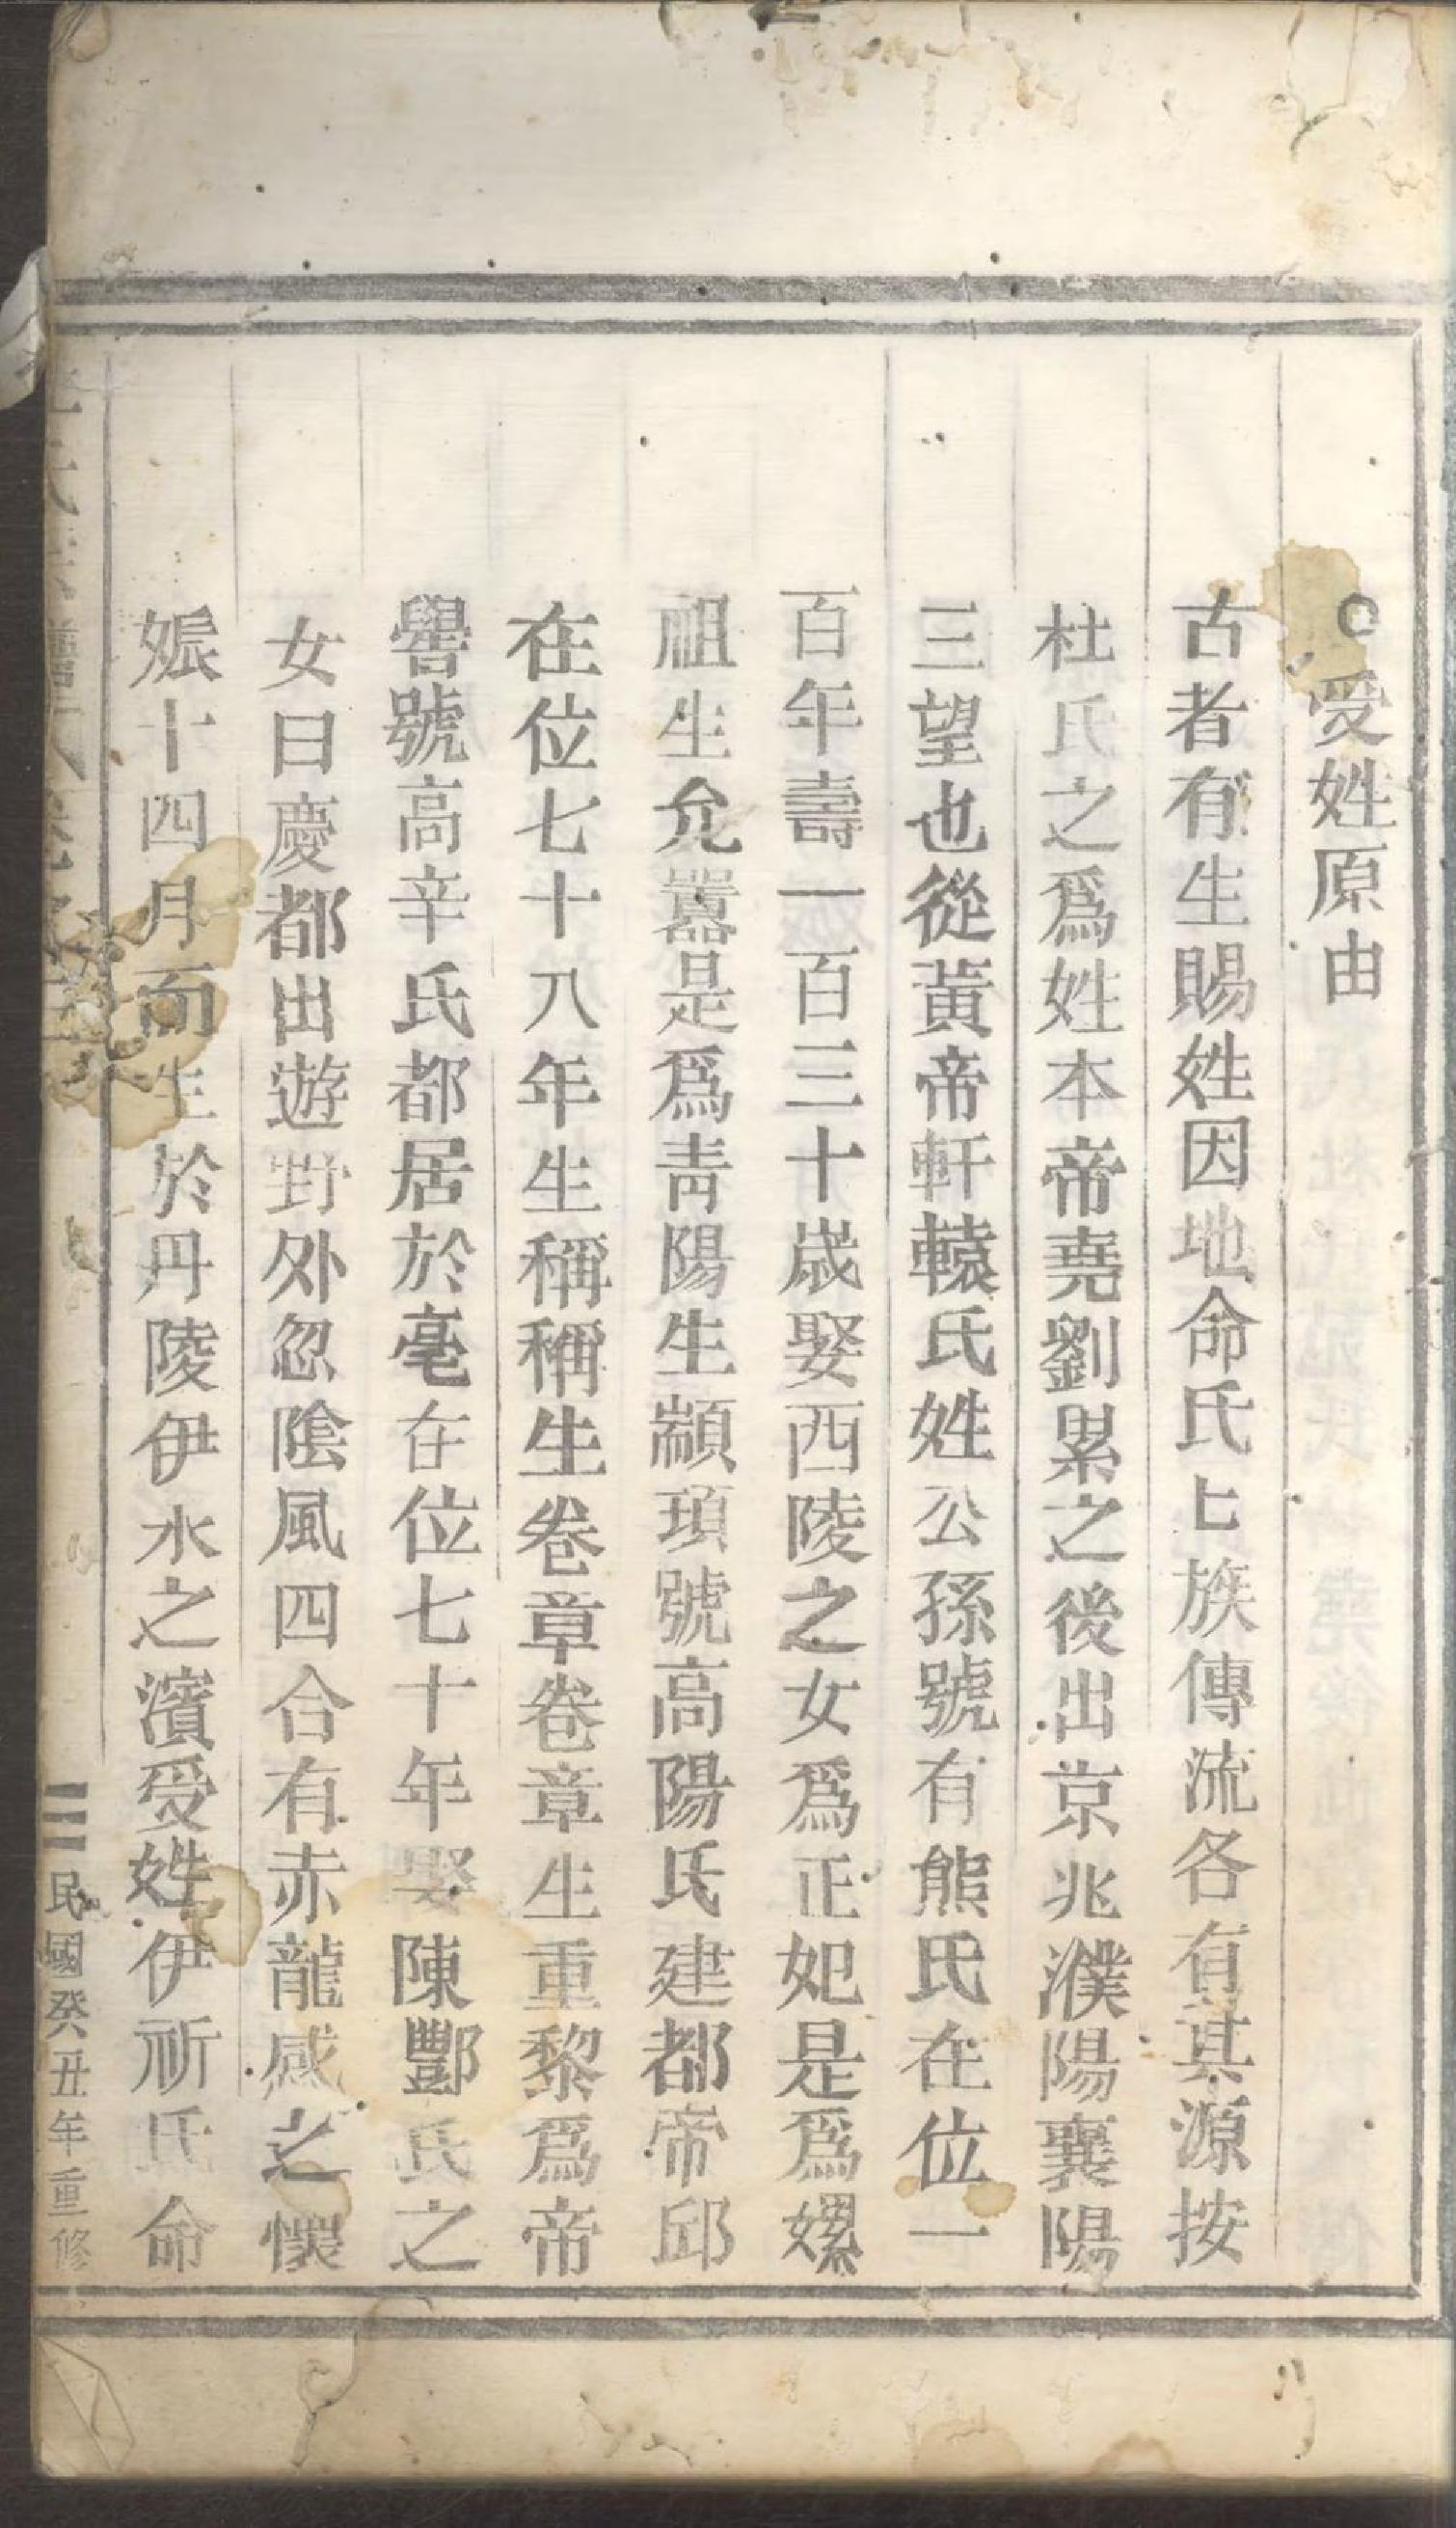 ○受姓原由
古者有生賜姓因地命氏匕族傳流各有其源按
杜氏之爲姓本帝堯劉累之後出京兆濮陽襄陽
三望也從黃帝軒轅氏姓公孫號有熊氏在位一
百年壽一百三十歲娶西陵之女爲正妃是爲嫘
祖生允囂是爲青陽陽生顓頊號高陽氏建都帝邱
在位七十八年生稱稱生卷章卷章生重黎爲帝
嚳號高辛氏都居於亳在位七十年娶陳酆氏之
女曰慶都出遊野外忽陰風四合有赤龍感之懷
娠十四月而生於丹陵伊水之濱受姓伊祈氏命
三 民國癸丑年重修